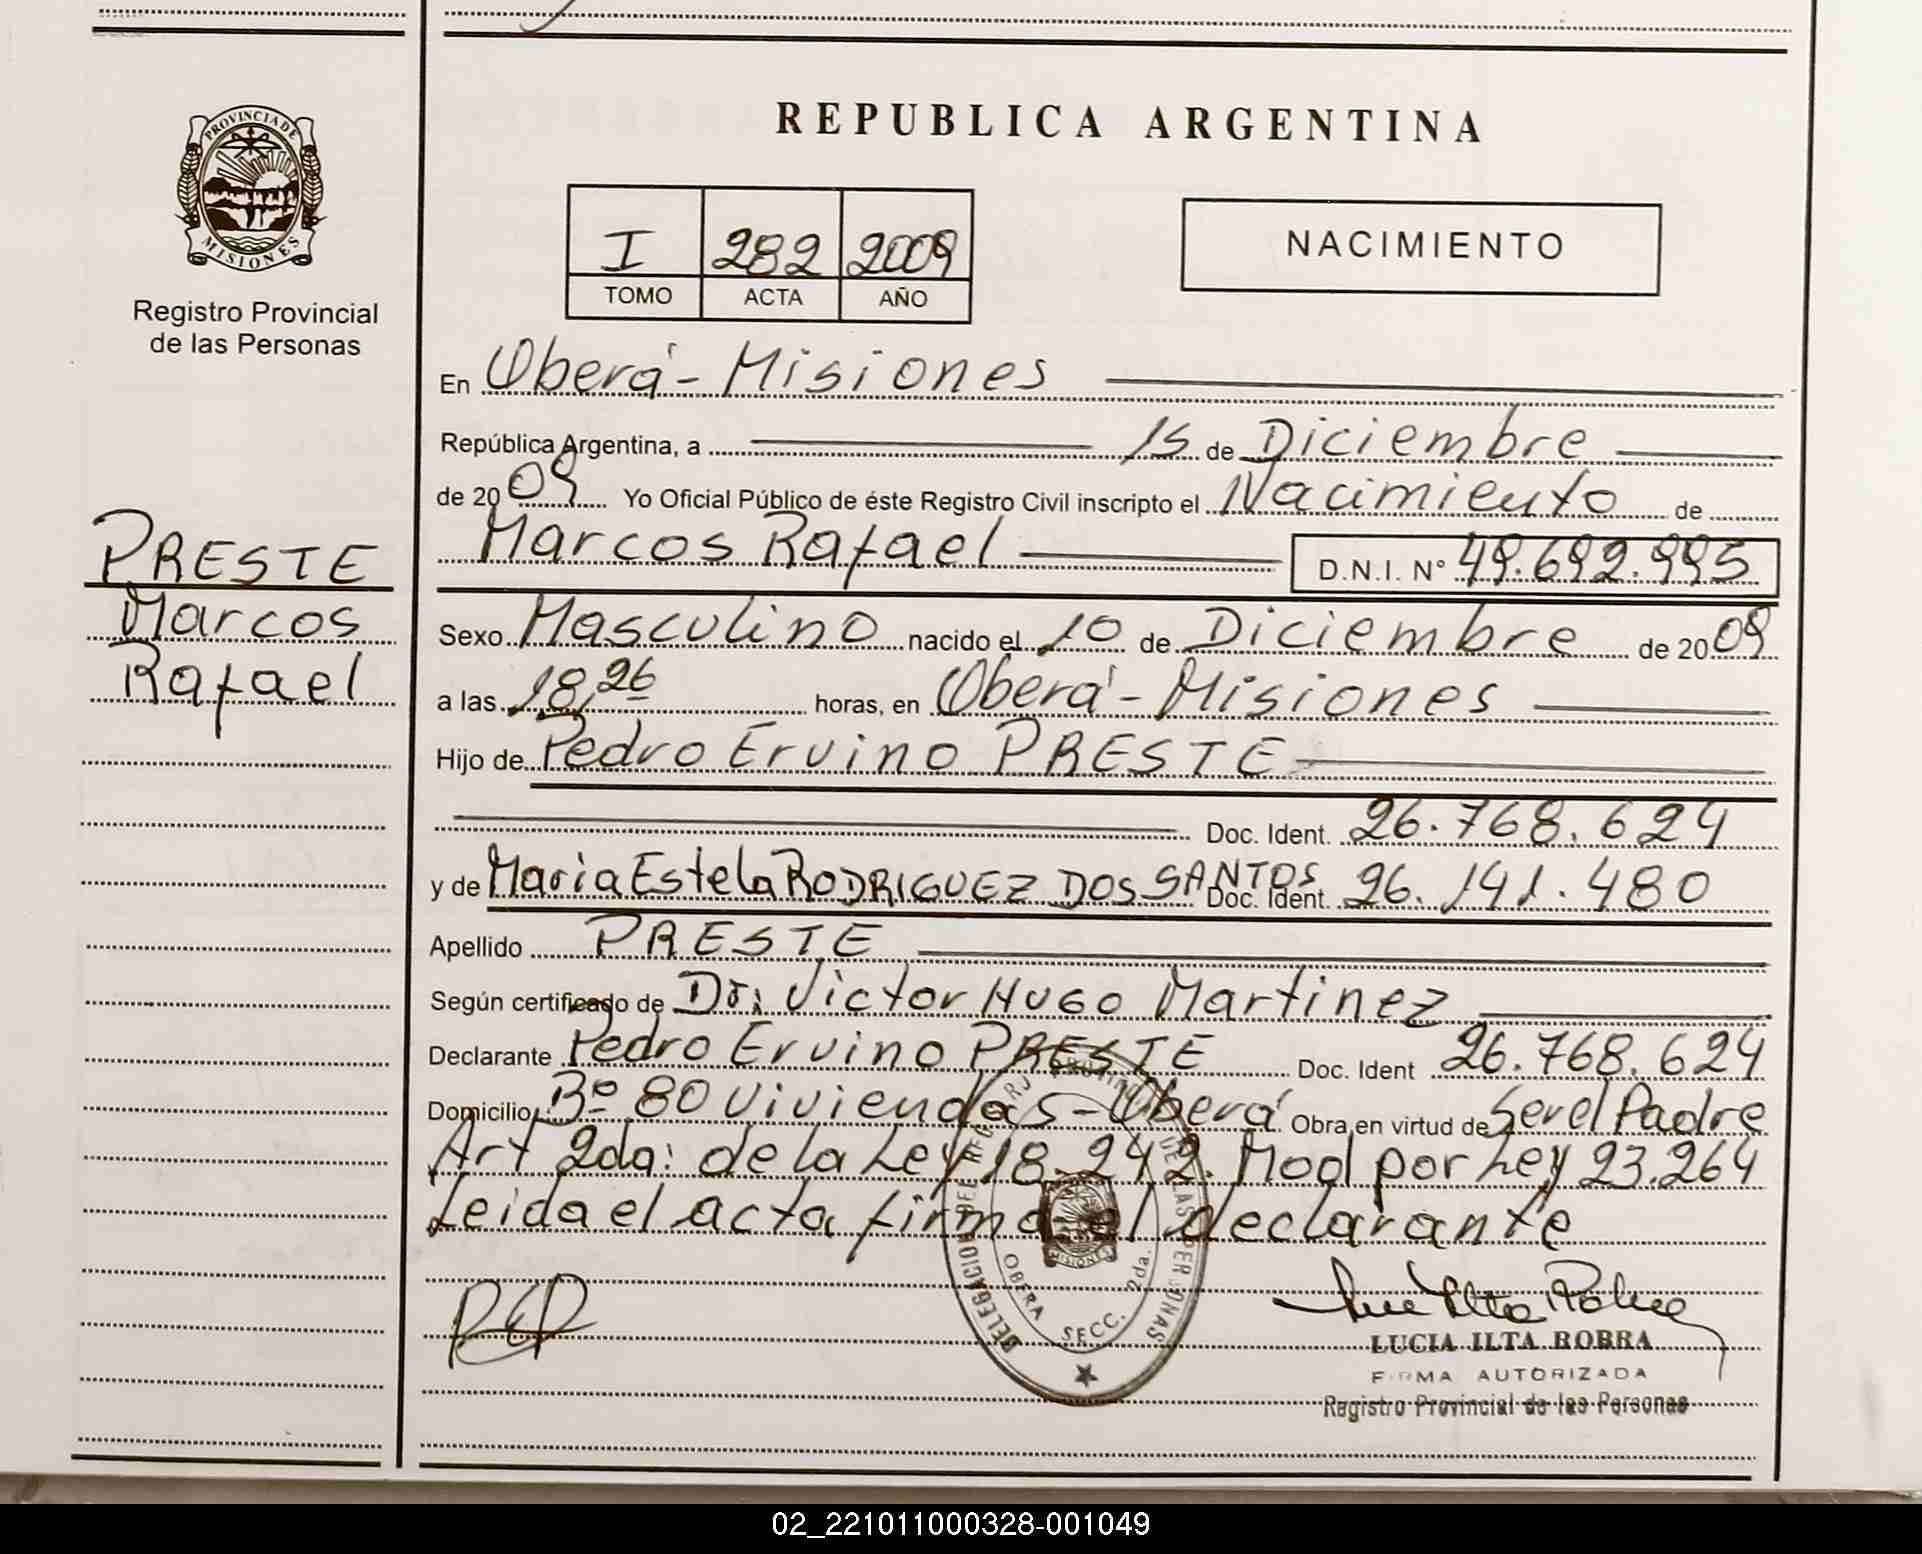 PROVINCIA DE
MISIONES
Registro Provincial
de las Personas
PRESTE
Marcos
Rafael
REPUBLICA ARGENTINA
I 282 2009
TOMO ACTA AÑO
NACIMIENTO
En Oberá - Misiones
República Argentina, a 15 de Diciembre
de 2009 Yo Oficial Público de éste Registro Civil inscripto el Nacimiento de
Marcos Rafael D.N.I. Nº 49.692.995
Sexo Masculino nacido el 10 de Diciembre de 2009
a las 18,26 horas, en Oberá - Misiones
Hijo de Pedro Ervino PRESTE
Doc. Ident. 26.768.624
y de Maria Estela RODRIGUEZ DOS SANTOS Doc. Ident. 26.141.480
Apellido PRESTE
Según certificado de Dr: Victor Hugo Martinez
Declarante Pedro Ervino PRESTE Doc. Ident 26.768.624
Domicilio Bº 80 Viviendas - Oberá Obra en virtud de Ser el Padre
Art 2da: de la Ley 18.242. Mod por Ley 23.264
Leida el acta firma el declarante
DELEGACION DEL REG. PROVINCIAL DE LAS PERSONAS
OBERA SECC. 2da.
MISIONES
LUCIA ILTA ROBRA
FIRMA AUTORIZADA
Registro Provincial de las Personas
02_221011000328-001049